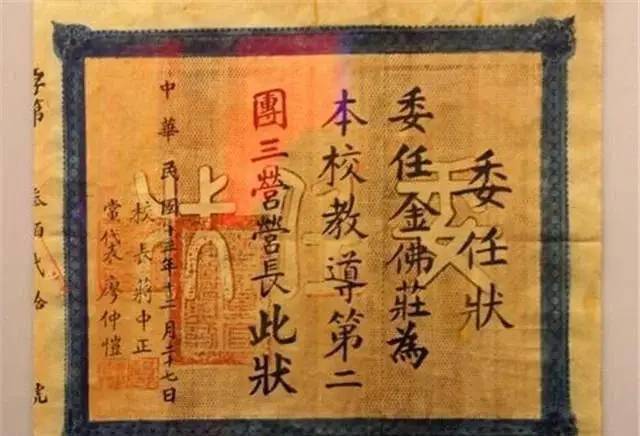 委任狀
委任金佛莊為
本校教導第二
團三營營長此狀
中華民國十三年十二月二十七日
校長蔣中正
黨代表廖仲愷
委任狀
字第
叁佰貳拾
號